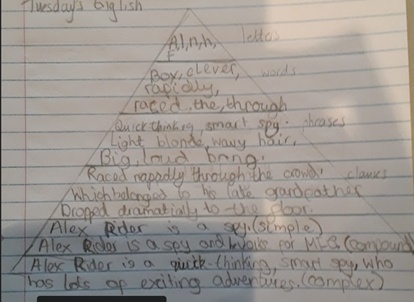 Tuesday's English
A, l, n, h, letters
F
Box, clever, words
rapidly,
raced, the, through
Quick thinking, smart spy. phrases
Light blonde, wavy hair.
Big, loud bang.
Raced rapadly through the crowd. clauses
Which belonged to his late grandfather
Dropped dramatically to the floor.
Alex Rider is a spy. (simple)
Alex Rider is a spy and works for MI6. (compound)
Alex Rider is a quick-thinking, smart spy, who
has lots of exciting adventures. (complex)